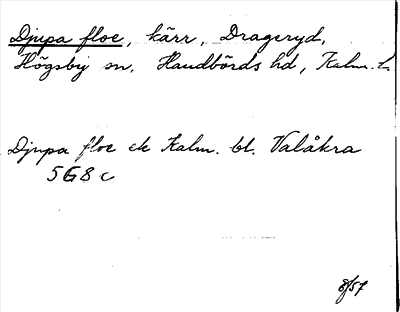 Djupa floe, kärr, Drageryd,
Högsby sn, Handbörds hd, Kalm. l.
Djupa floe ek Kalm. bl. Valåkra
5G8c
8/57